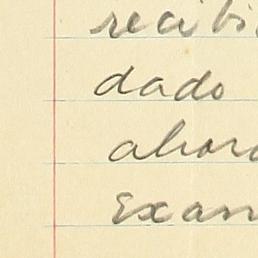 recibi
dado
ahora
Exam